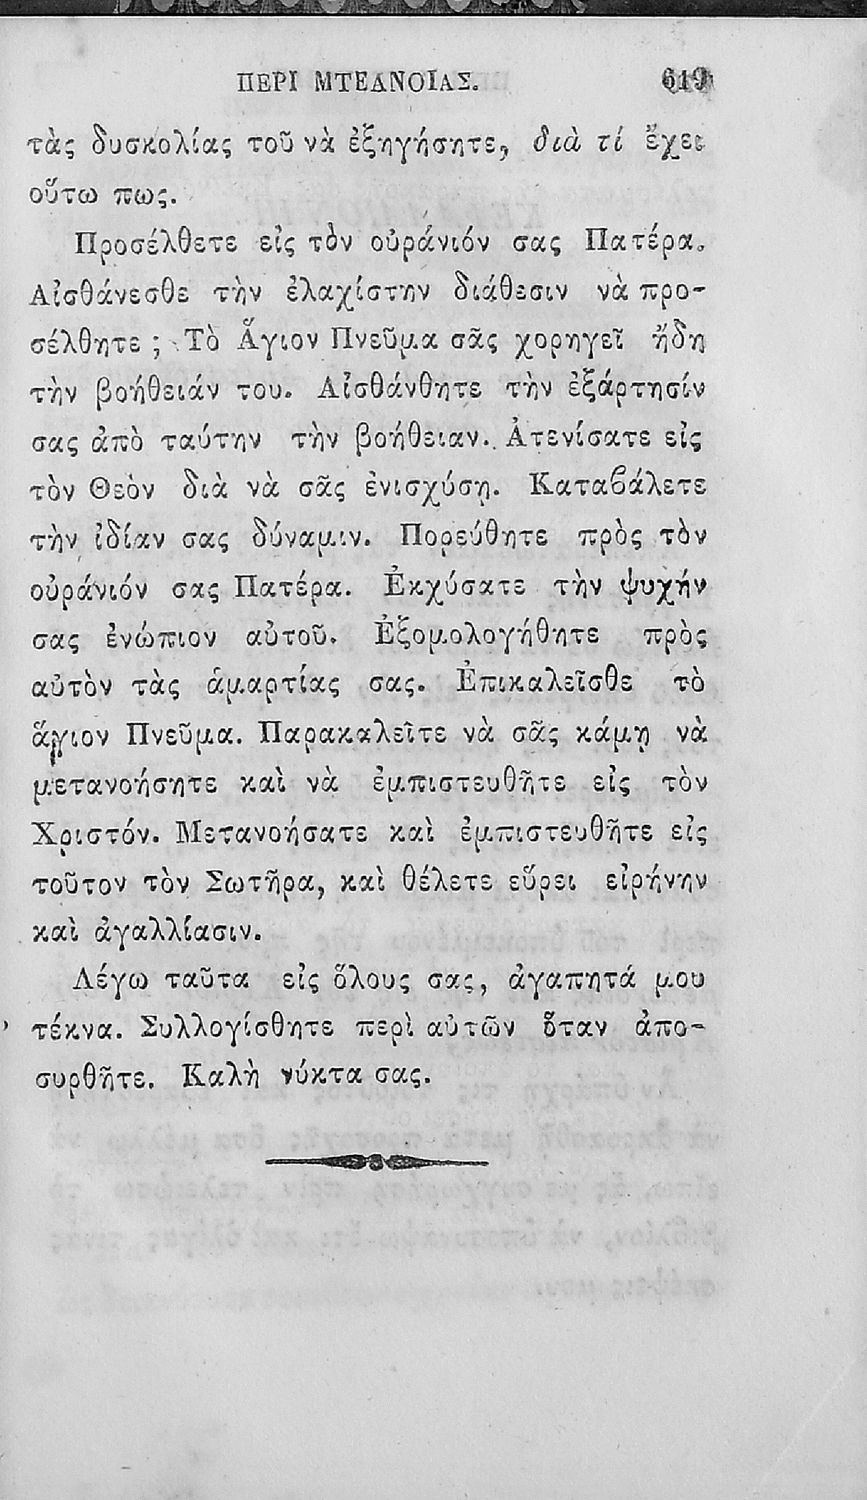 ΠΕΡΙ ΜΤΕΑΝΟΙΑΣ. 619
τὰς δυσκολίας τοῦ νὰ ἐξηγήσητε, διὰ τί ἔχει
οὕτω πως.
Προσέλθετε εἰς τὸν οὐράνιόν σας Πατέρα.
Αἰσθάνεσθε τὴν ἐλαχίστην διάθεσιν νὰ προ-
σέλθητε ; Τὸ Ἅγιον Πνεῦμα σᾶς χορηγεῖ ἤδη
τὴν βοήθειάν του. Αἰσθάνθητε τὴν ἐξάρτησίν
σας ἀπὸ ταύτην τὴν βοήθειαν. Ἀτενίσατε εἰς
τὸν Θεὸν διὰ νὰ σᾶς ἐνισχύσῃ. Καταβάλετε
τὴν ἰδίαν σας δύναμιν. Πορεύθητε πρὸς τὸν
οὐράνιόν σας Πατέρα. Ἐκχύσατε τὴν ψυχήν
σας ἐνώπιον αὐτοῦ. Ἐξομολογήθητε πρὸς
αὐτὸν τὰς ἁμαρτίας σας. Ἐπικαλεῖσθε τὸ
ἅγιον Πνεῦμα. Παρακαλεῖτε νὰ σᾶς κάμῃ νὰ
μετανοήσητε καὶ νὰ ἐμπιστευθῆτε εἰς τὸν
Χριστόν. Μετανοήσατε καὶ ἐμπιστευθῆτε εἰς
τοῦτον τὸν Σωτῆρα, καὶ θέλετε εὕρει εἰρήνην
καὶ ἀγαλλίασιν.
Λέγω ταῦτα εἰς ὅλους σας, ἀγαπητά μου
τέκνα. Συλλογίσθητε περὶ αὐτῶν ὅταν ἀπο-
συρθῆτε. Καλὴ νύκτα σας.